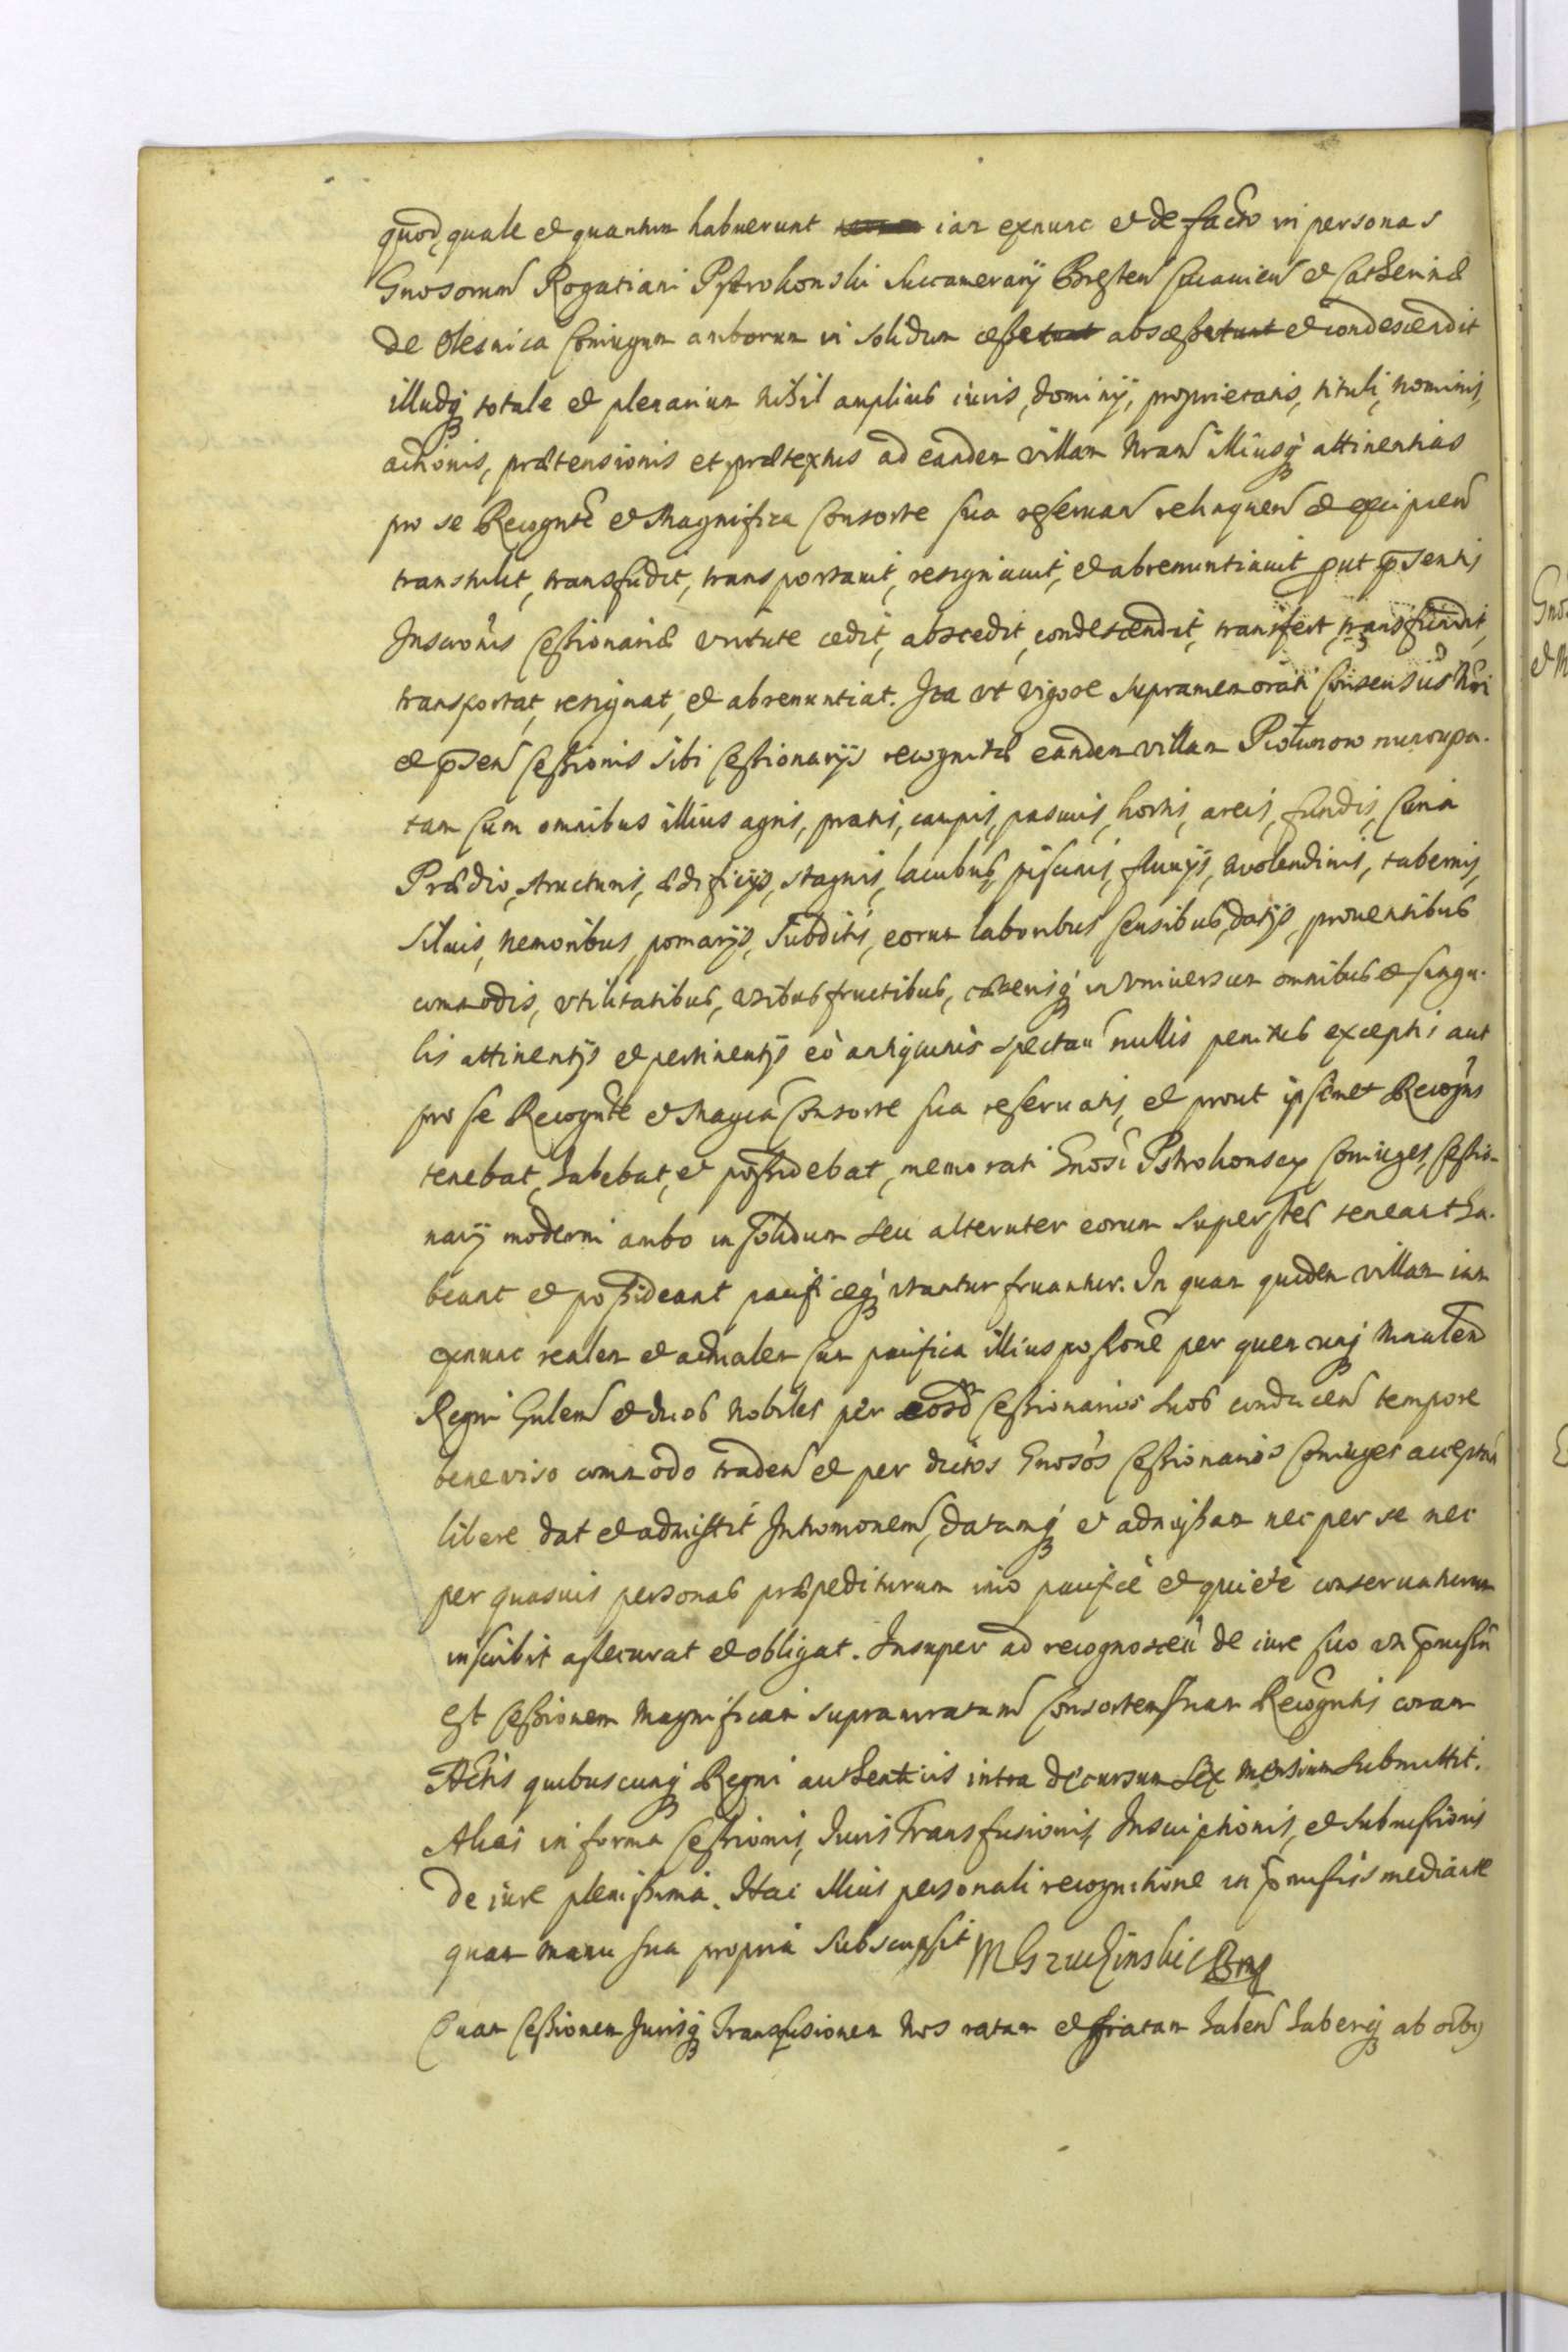 quod, quale et quantum habuerunt iam exnunc et de facto in personas
Gnosorum Rogatiani Pstrokonski Succamerarij Bresten Cuiavien et Catherinæ
de Olesnica Coniugum amborum in solidum cessit abscessit et condescendit
illudq totale et plenarium nihil amplius iuris, dominij, proprietatis, tituli, nominis,
actionis, prætensionis et prætextus ad eandem villam nram illiusq attinentias
pro se Recognte et Magnifica Consorte sua reservan relinquen et excipien
transtulit, transfudit, transportavit, resignavit, et abrenuntiavit put psentis
Inscronis Cessionariæ virtute cedit, abscedit, condescendit, transfert, transfundit,
transportat, resignat, et abrenuntiat. Ita ut vigore supramemorati Consensus Nri
et psen Cessionis sibi Cessionarijs recognitæ eandem villam nuncupa-
tam cum omnibus illius agris, pratis, campis, pascuis, hortis, areis, fundis, Curia
Prædio, structuris, ædificijs, stagnis, lacubus, piscinis, fluvijs, molendinis, tabernis,
silvis, nemoribus, pomarijs, subditis, eorum laboribus censibus, datijs, proventibus
commodis, utilitatibus, usibus fructibus, cæterisq in universum omnibus et singu-
lis attinentijs et pertinentijs eò antiquitus spectan nullis penitus exceptis aut
pro se Recognte et Magca Consorte sua reservatis, et prout ipsemet Recogns
tenebat, habebat, et possidebat, memorati Gnosi Pstrokonscy Coniuges, Cessio-
narij moderni ambo in solidum seu alteruter eorum superstes teneant ha-
beant et possideant pacificeq utantur fruantur. In quam quidem villam iam
exnunc realem et actualem cum pacifica illius possone per quemcunq Ministen
Regni Gnlem et duos Nobiles per eosd Cessionarios suos conducen tempore
beneviso commodo traden et per dictos Gnosos Cessionarios Coniuges acceptan
libere dat et admittit Intromonem, datamq et admissam nec per se nec
per quasvis personas præpediturum imo pacificè et quietè conservaturum
inscribit assecurat et obligat. Insuper ad recognoscen de iure suo uti pmissu
est Cessionem Magnificam supranratam Consortem suam Recogntis coram
Actis quibuscunq Regni authenticis intra decursum sex mensium submittit.
Alias in forma Cessionis, Juris Transfusionis, Inscriptionis, et submissionis
de iure plenissima. Hac illius personali recognitione in pmissis mediante
quam manu sua propria subscripsit
Quam Cessionem Jurisq Transfusionem Nos ratam et gratam haben haberiq ab oibus